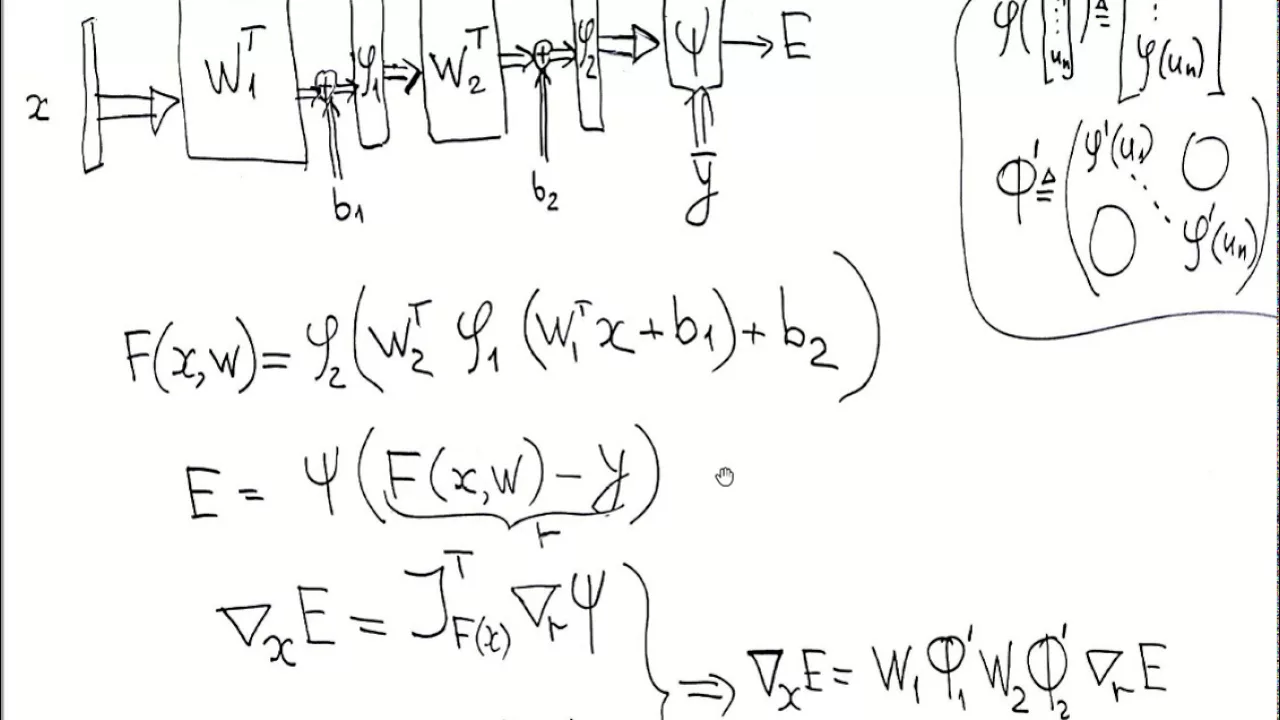 x W₁ᵀ + φ₁ W₂ᵀ + φ₂ Ψ → E
b₁ b₂ y
φ([⋮ uₙ]) ≜ [⋮ φ(uₙ)]
Φ' ≜ (φ'(u₁) 0 ⋱ 0 φ'(uₙ))
F(x,w) = φ₂(W₂ᵀ φ₁(W₁ᵀx + b₁) + b₂)
E = Ψ(F(x,w) − y)
r
∇ₓE = Jᵀ_F(x) ∇ᵣΨ
⇒ ∇ₓE = W₁Φ₁'W₂Φ₂'∇ᵣE